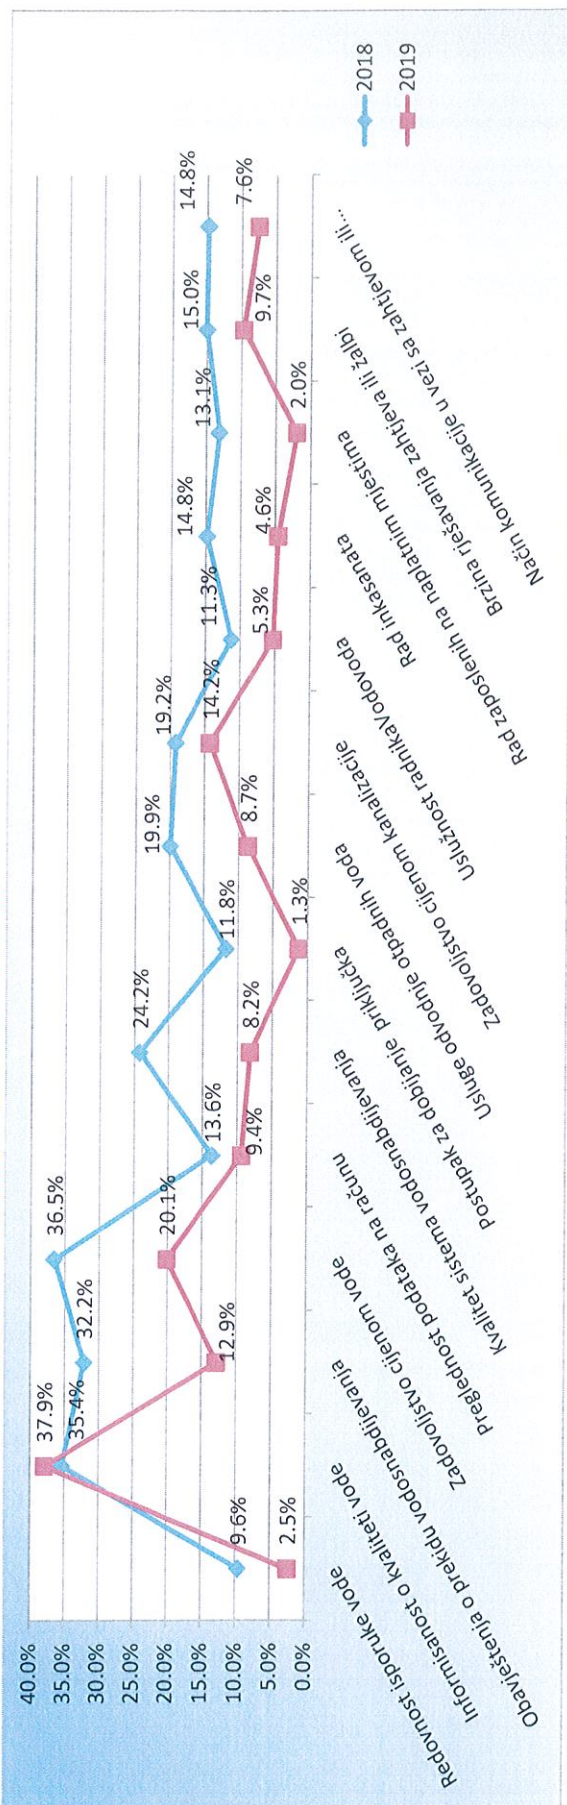 40.0%
35.0%
30.0%
25.0%
20.0%
15.0%
10.0%
5.0%
0.0%
9.6%
35.4%
32.2%
36.5%
13.6%
24.2%
11.8%
19.9%
19.2%
11.3%
14.8%
13.1%
15.0%
14.8%
2.5%
37.9%
12.9%
20.1%
9.4%
8.2%
1.3%
8.7%
14.2%
5.3%
4.6%
2.0%
9.7%
7.6%
Redovnost isporuke vode
Informisanost o kvaliteti vode
Obavještenja o prekidu vodosnabdijevanja
Zadovoljstvo cijenom vode
Preglednost podataka na računu
Kvalitet sistema vodosnabdijevanja
Postupak za dobijanje priključka
Usluge odvodnje otpadnih voda
Zadovoljstvo cijenom kanalizacije
Uslužnost radnikaVodovoda
Rad inkasanata
Rad zaposlenih na naplatnim mjestima
Brzina rješavanja zahtjeva ili žalbi
Način komunikacije u vezi sa zahtjevom ili...
2018
2019